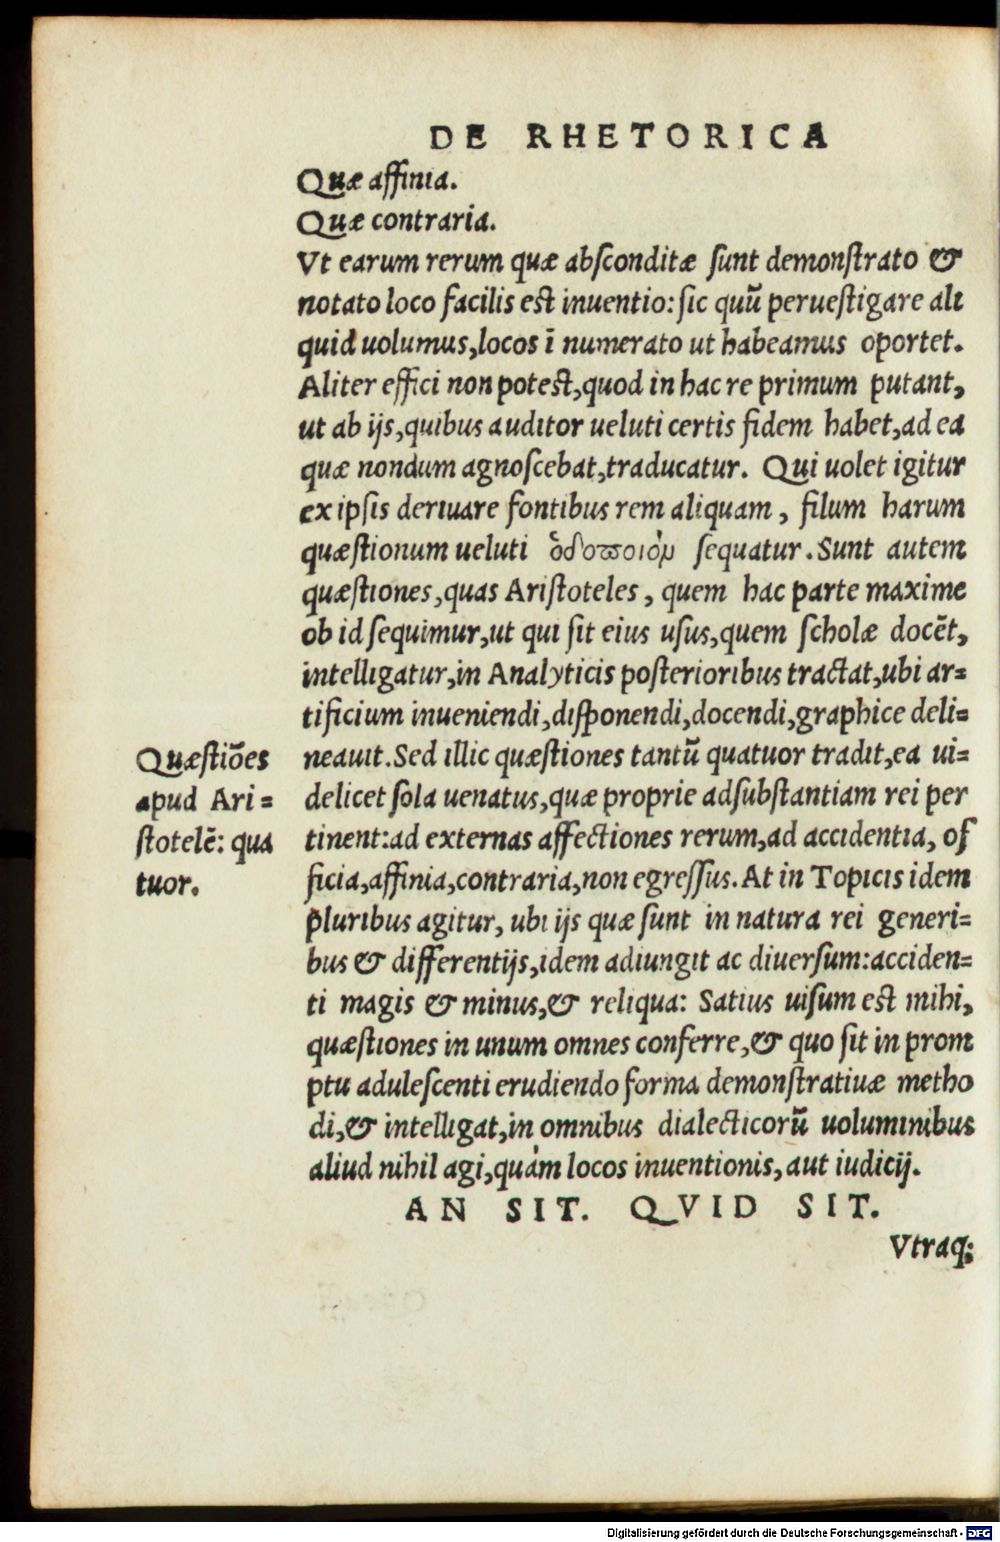 DE RHETORICA
Quæ affinia.
Quæ contraria.
Vt earum rerum quæ absconditæ sunt demonstrato &
notato loco facilis est inuentio: sic quũ peruestigare ali
quid uolumus, locos ĩ numerato ut habeamus oportet.
Aliter effici non potest, quod in hac re primum putant,
ut ab ijs, quibus auditor ueluti certis fidem habet, ad ea
quæ nondum agnoscebat, traducatur. Qui uolet igitur
ex ipsis deriuare fontibus rem aliquam, filum harum
quæstionum ueluti ὁδοποιὸν sequatur. Sunt autem
quæstiones, quas Aristoteles, quem hac parte maxime
ob id sequimur, ut qui sit eius usus, quem scholæ docẽt,
intelligatur, in Analyticis posterioribus tractat, ubi ar=
tificium inueniendi, disponendi, docendi, graphice deli=
neauit. Sed illic quæstiones tantũ quatuor tradit, ea ui=
delicet sola uenatus, quæ proprie ad substantiam rei per
tinent: ad externas affectiones rerum, ad accidentia, of
ficia, affinia, contraria, non egressus. At in Topicis idem
pluribus agitur, ubi ijs quæ sunt in natura rei generi=
bus & differentijs, idem adiungit ac diuersum: acciden=
ti magis & minus, & reliqua: Satius uisum est mihi,
quæstiones in unum omnes conferre, & quo sit in prom
ptu adulescenti erudiendo forma demonstratiuæ metho
di, & intelligat, in omnibus dialecticorũ uoluminibus
aliud nihil agi, quàm locos inuentionis, aut iudicij.
AN SIT. QVID SIT.
Vtraq;
Quæstiões
apud Ari=
stotelẽ: qua
tuor.
Digitalisierung gefördert durch die Deutsche Forschungsgemeinschaft - DFG